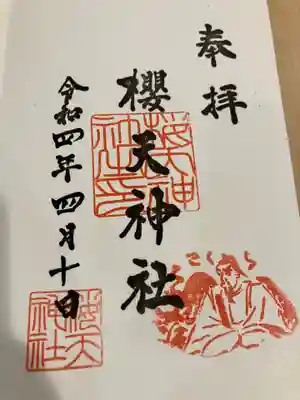 奉拝
櫻天神社
令和四年四月十日
櫻天神社印
さくら
櫻天神社